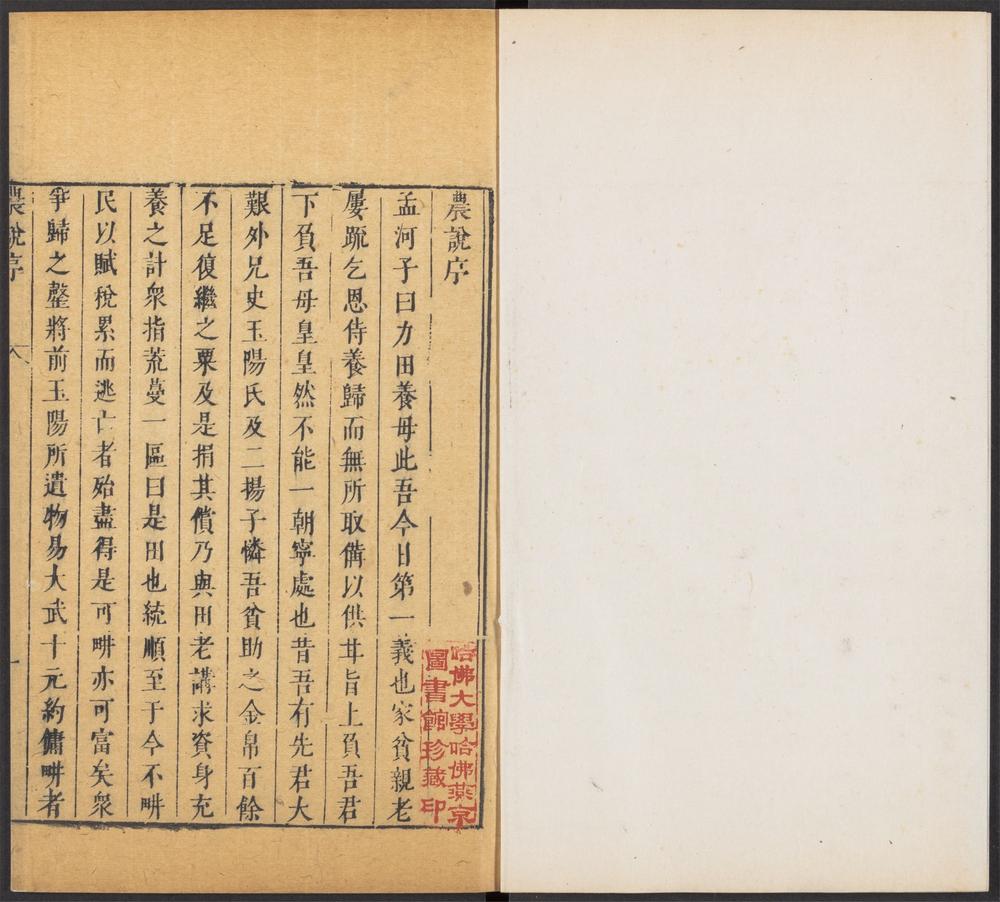 農說序
孟河子曰力田養母此吾今日第一義也家貧親老
屢䟽乞恩侍養歸而無所取備以供甘旨上負吾君
下負吾母皇皇然不能一朝寧處也昔吾有先君大
艱外兄史玉陽氏及二揚子憐吾貧助之金帛百餘
不足復繼之粟及是捐其償乃與田老講求資身充
養之計衆指荒蔓一區曰是田也統順至于今不畊
民以賦稅累而逃亡者殆盡得是可畊亦可富矣衆
爭歸之罄將前玉陽所遺物易大武十元約傭畊者
農說序
一
哈佛大學哈佛燕京
圖書館珍藏印